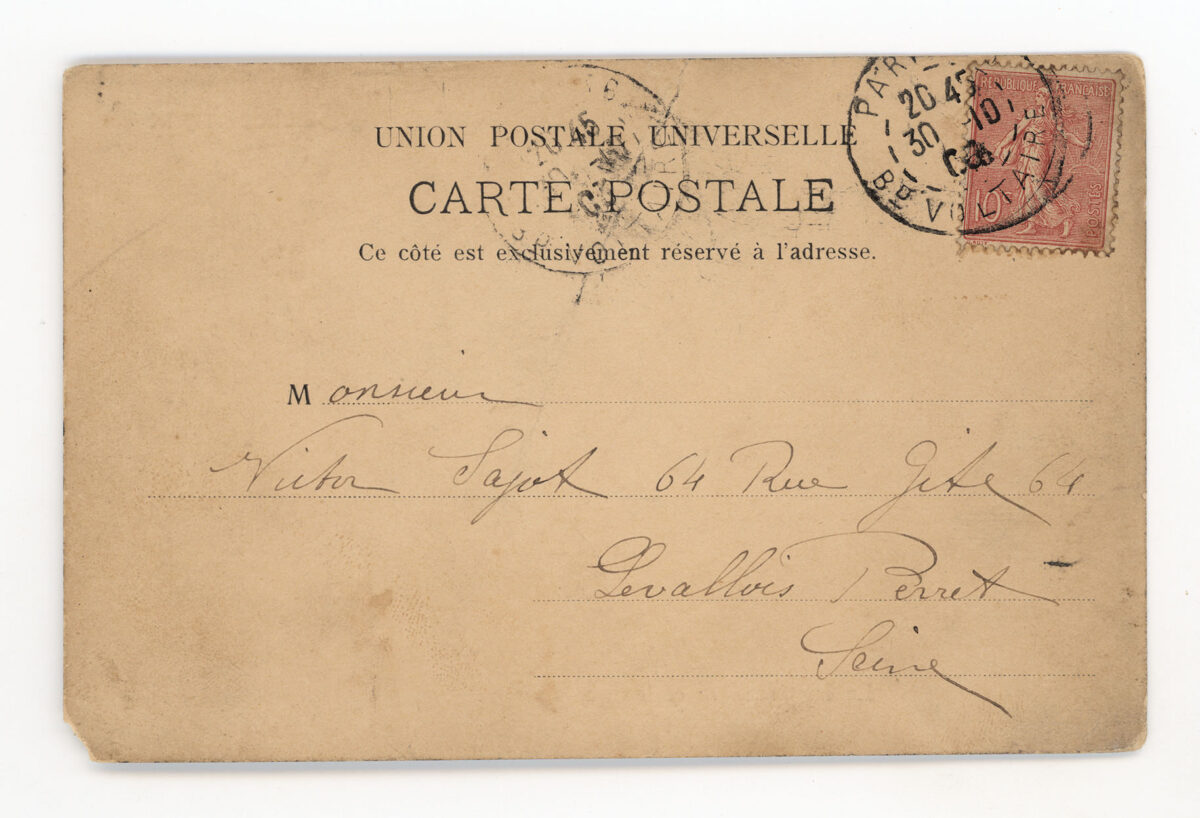 RÉPUBLIQUE FRANÇAISE
10
POSTES
PARIS
20 45
30 -10
BD VOLTAIRE
UNION POSTALE UNIVERSELLE
CARTE POSTALE
Ce côté est exclusivement réservé à l'adresse.
Monsieur
Victor Sajot 64 Rue Gite 64
Levallois Perret
Seine